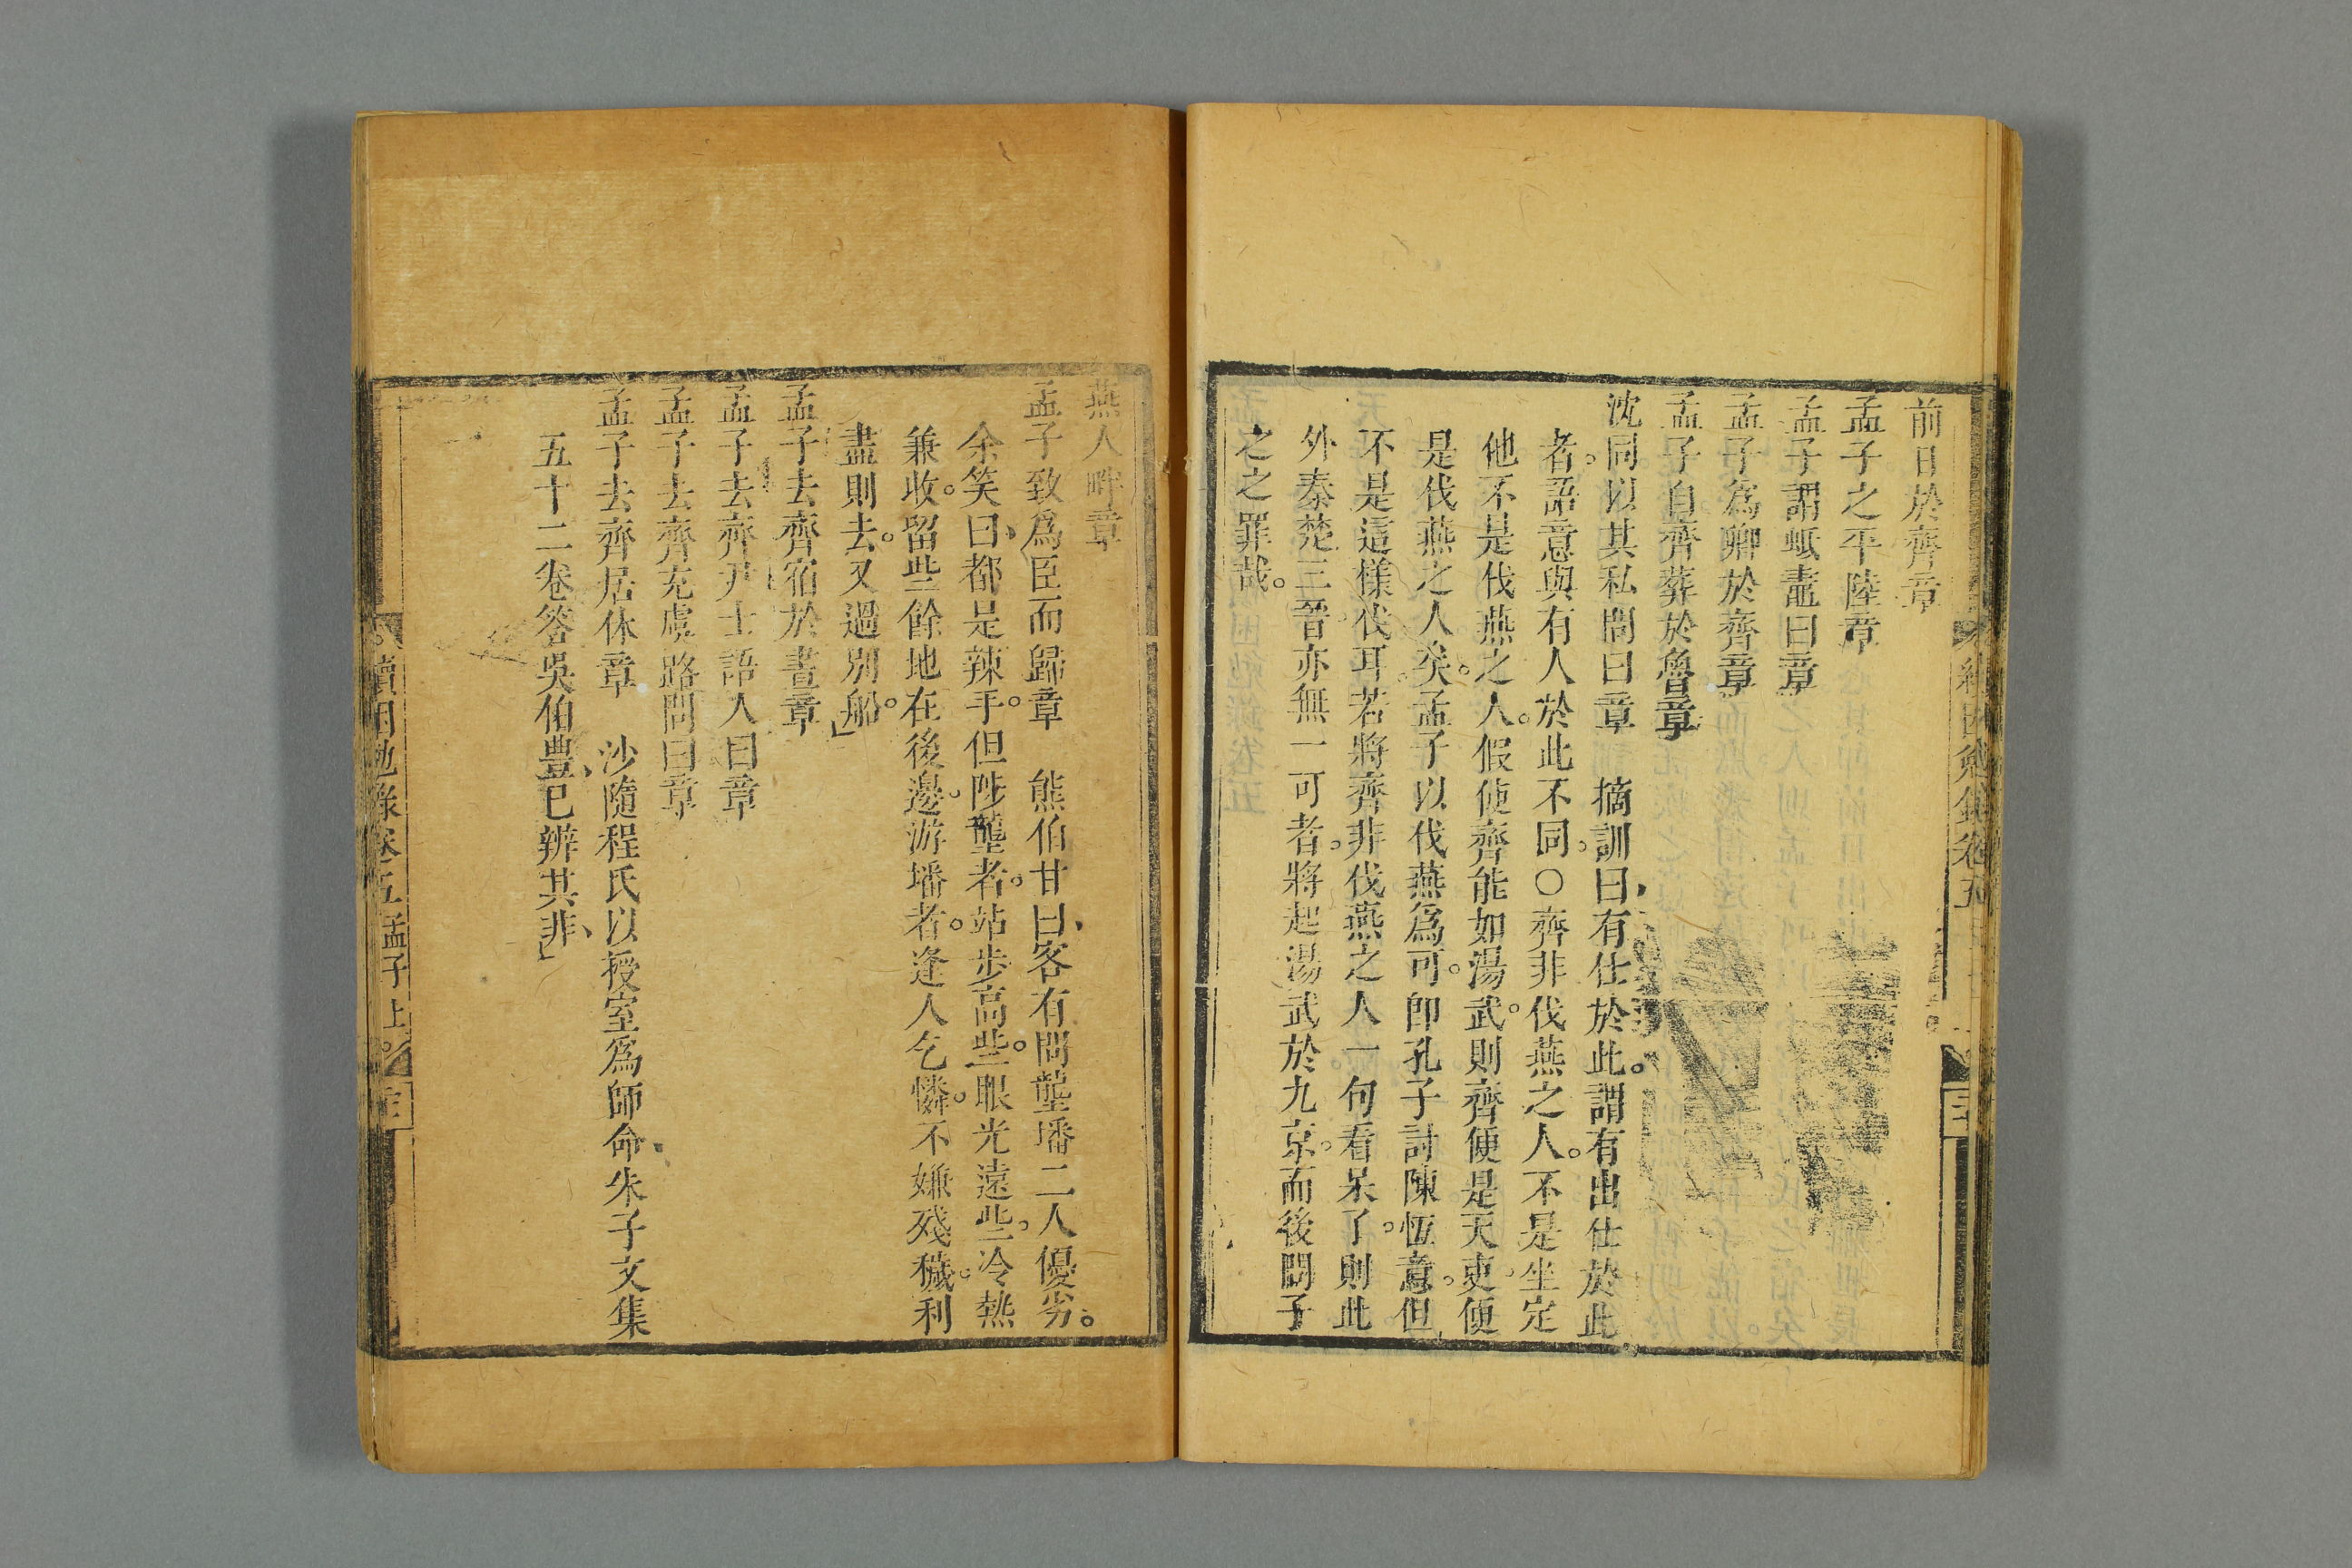 前日於齊章
孟子之平陸章
孟子謂蚳鼃曰章
孟子爲卿於齊章
孟子自齊葬於魯章
沈同以其私問曰章　摘訓曰、有仕於此。謂有出仕於此
者。語意與有人於此不同。○齊非伐燕之人。不是坐定
他不是伐燕之人。假使齊能如湯武。則齊便是天吏。便
是伐燕之人矣。孟子以伐燕爲可。卽孔子討陳恆意。但
不是這樣伐耳。若將齊非伐燕之人一句看呆了。則此
外秦楚三晉亦無一可者。將起湯武於九京。而後問子
之之罪哉。
燕人畔章
孟子致爲臣而歸章　熊伯甘曰、客有問壟墦二人優劣。
余笑曰、都是辣手。但陟壟者。站步高些。眼光遠些。冷熱
兼收。留些餘地在後邊。游墦者。逢人乞憐。不嫌殘穢。利
盡則去。又過別船。」
孟子去齊宿於晝章
孟子去齊尹士語人曰章
孟子去齊充虞路問曰章
孟子去齊居休章　沙隨程氏以授室爲師命、朱子文集
五十二卷答吳伯豐、已辨其非、」
續困勉錄卷五 孟子上。